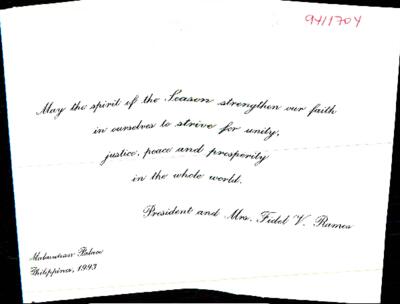 94/1704
May the spirit of the Season strengthen our faith
in ourselves to strive for unity,
justice, peace and prosperity
in the whole world.
President and Mrs. Fidel V. Ramos
Malacañan Palace
Philippines, 1993